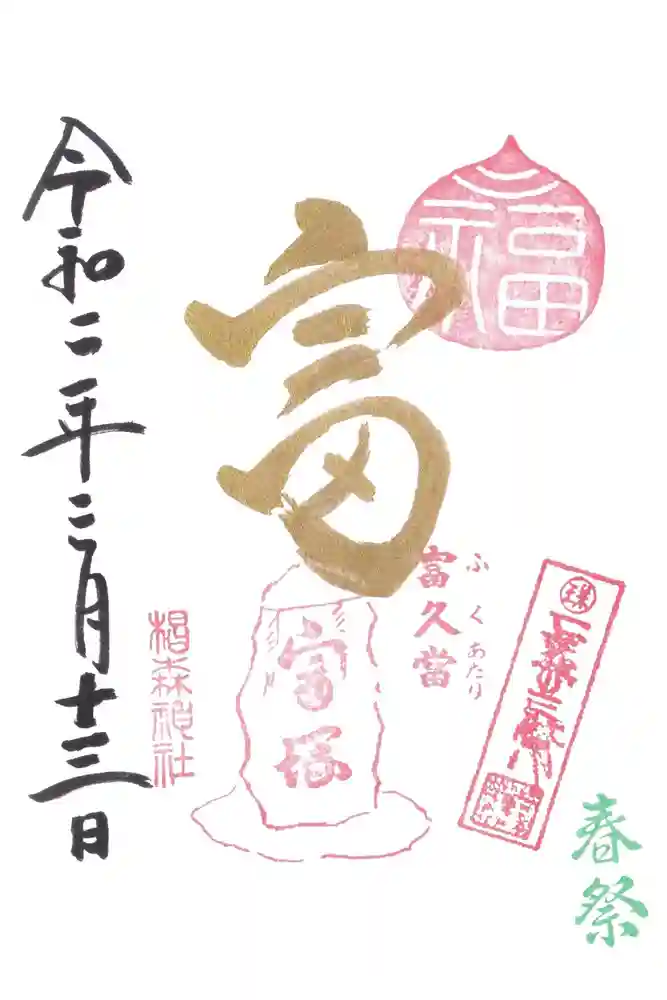 福
富
富久當
ふくあたり
富塚
春祭
椙森神社
令和二年二月十三日